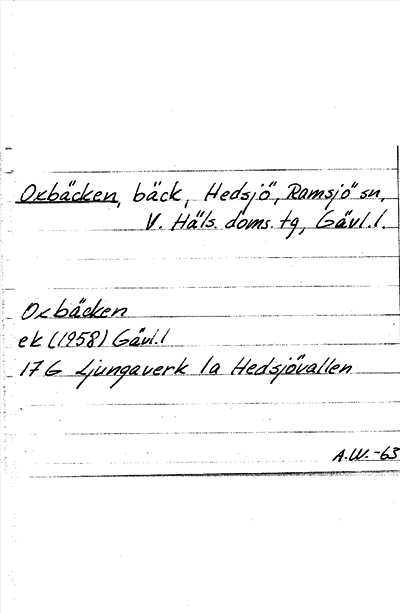 Oxbäcken, bäck, Hedsjö, Ramsjö sn,
V. Häls. doms. tg, Gävl. l.
Oxbäcken
ek (1958) Gävl. l
17 G Ljungaverk 1a Hedsjövallen
A.W. -63